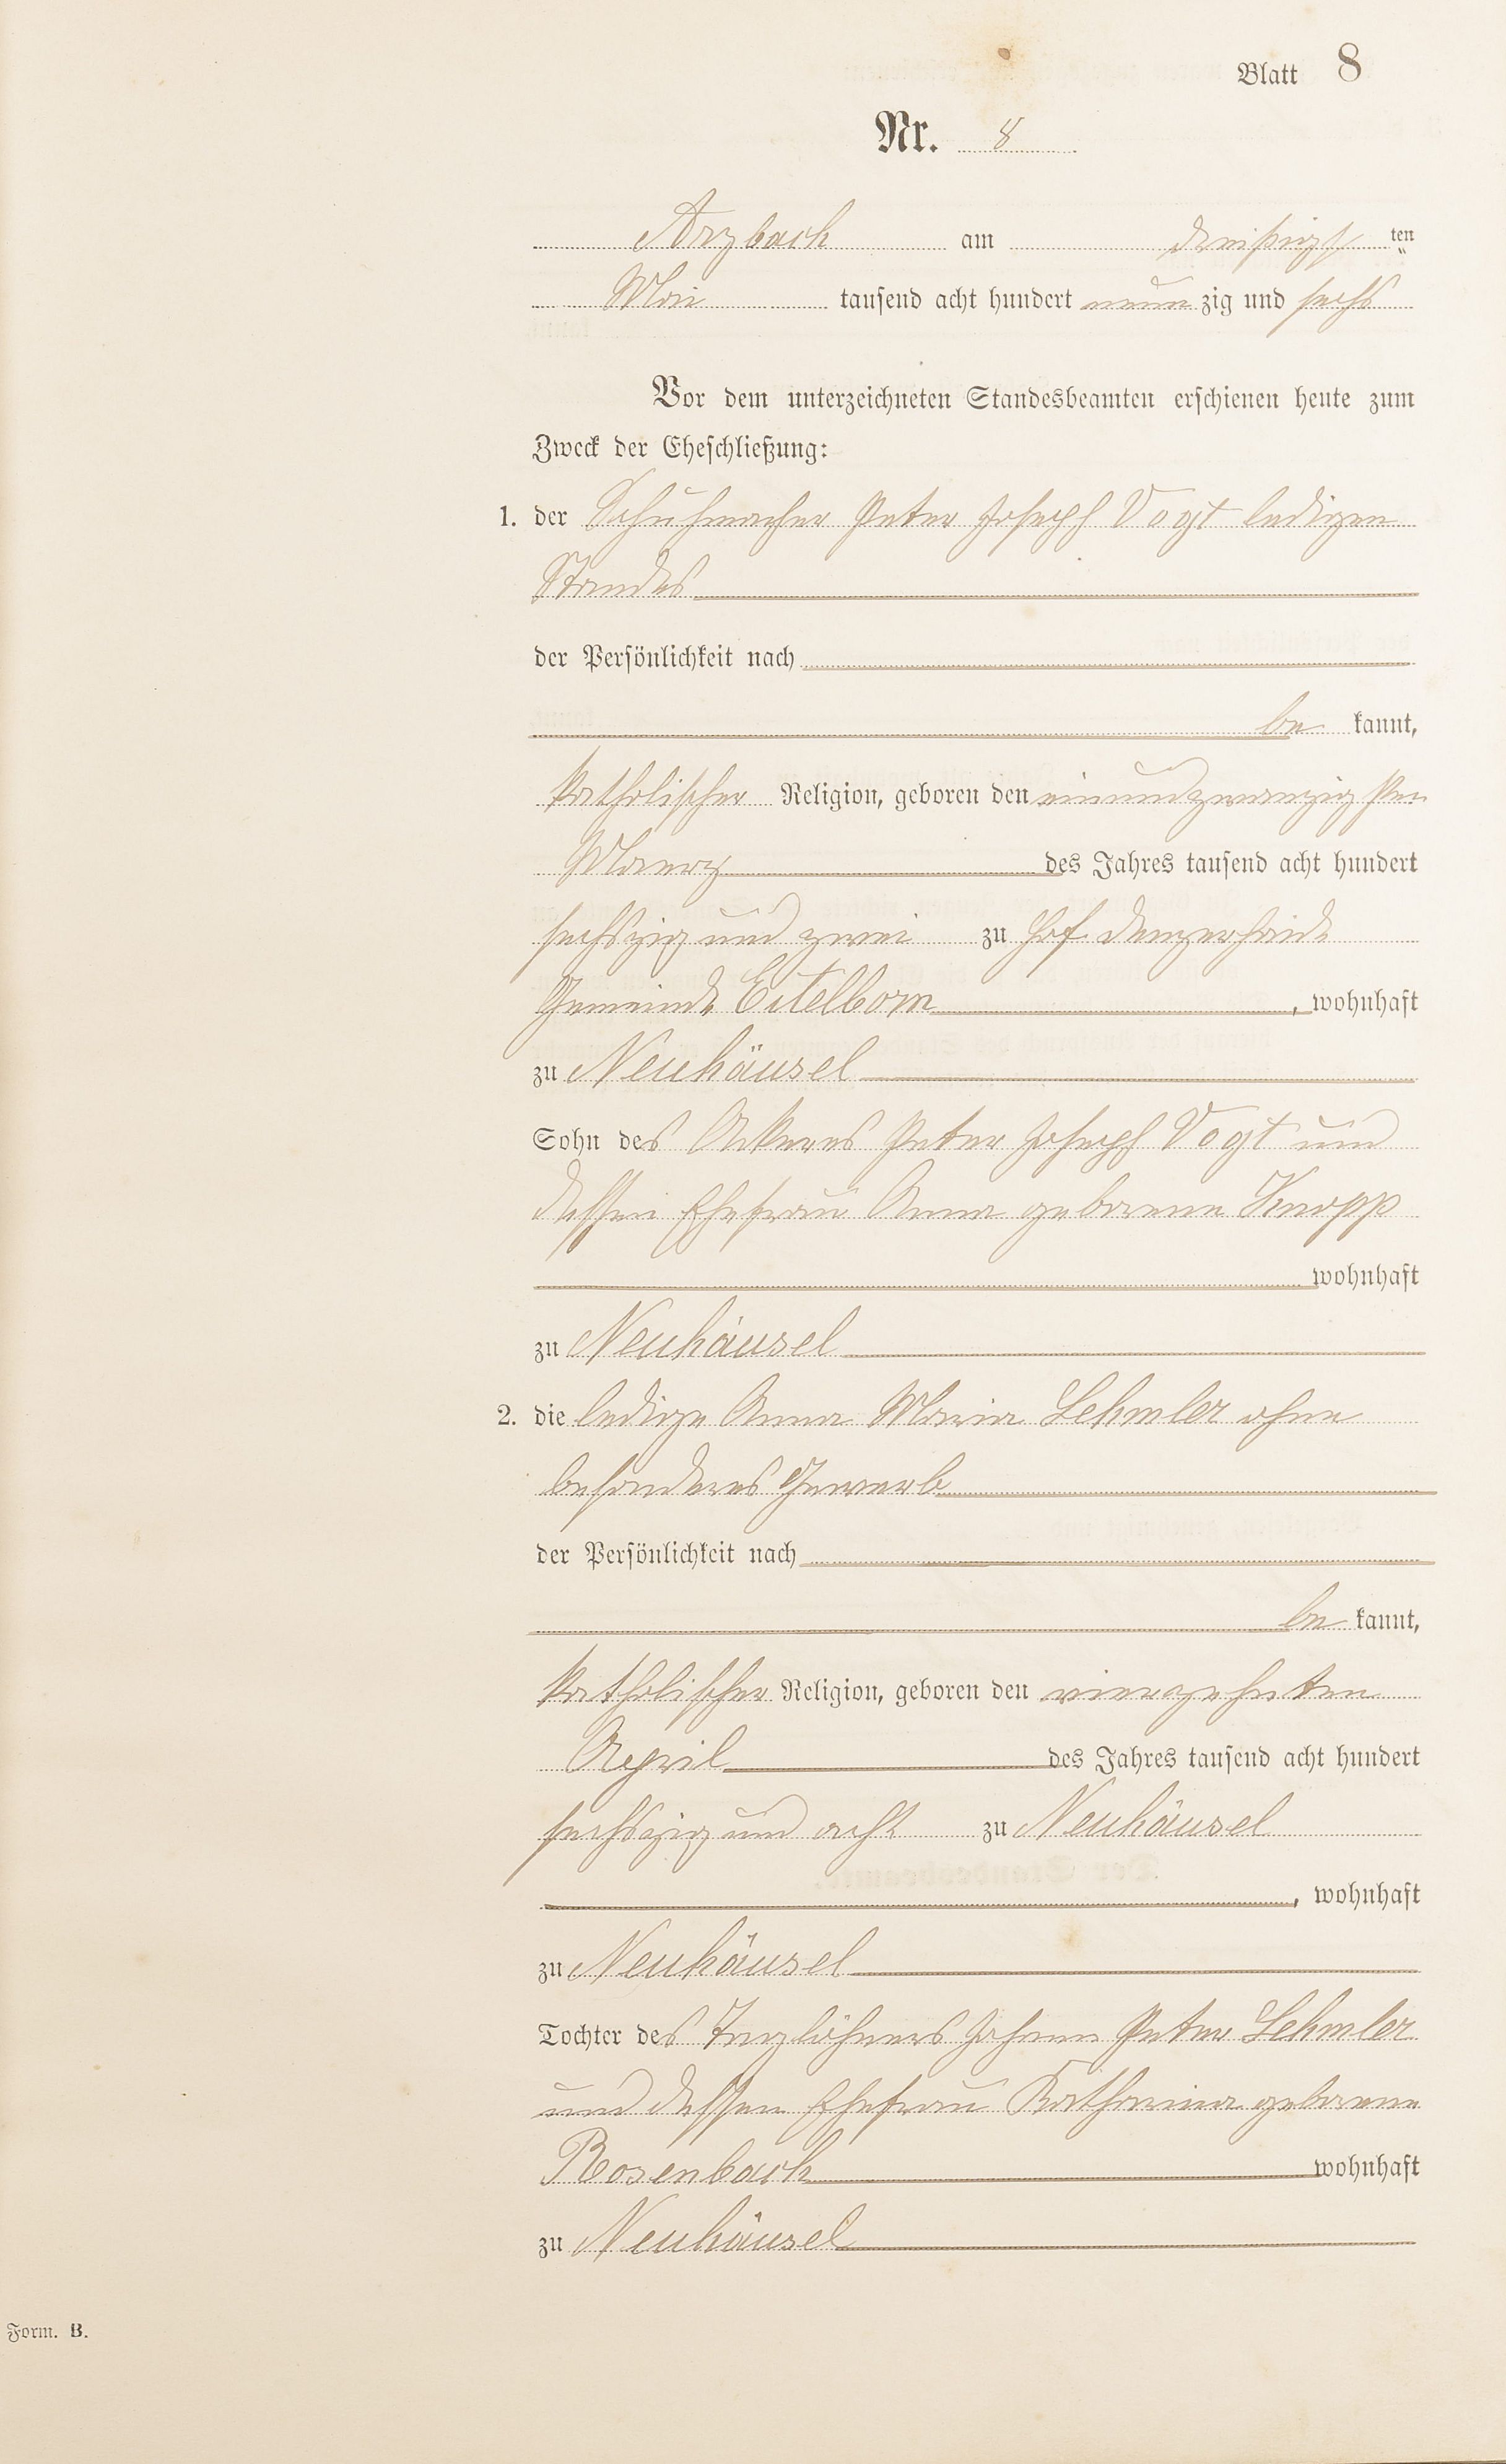 Blatt 8
Nr. 8
Arzbach am dreißigsten
Mai tausend acht hundert neunzig und sechs
Vor dem unterzeichneten Standesbeamten erschienen heute zum
Zweck der Eheschließung:
1. der Schuhmacher Peter Joseph Vogt ledigen
Standes
der Persönlichkeit nach
be kannt,
katholischer Religion, geboren den einundzwanzigsten
Maerz des Jahres tausend acht hundert
sechszig und zwei zu Hof Denzerheide
Gemeinde Eitelborn, wohnhaft
zu Neuhäusel
Sohn des Ackerers Peter Joseph Vogt und
dessen Ehefrau Anna geborene Knopp
wohnhaft
zu Neuhäusel
2. die ledige Anna Maria Lehmler ohne
besonderes Gewerb
der Persönlichkeit nach
be kannt,
katholischer Religion, geboren den vierzehnten
April des Jahres tausend acht hundert
sechszig und acht zu Neuhäusel
, wohnhaft
zu Neuhäusel
Tochter des Taglöhners Johann Peter Lehmler
und dessen Ehefrau Katharina geborene
Rosenbach wohnhaft
zu Neuhäusel
Form. B.